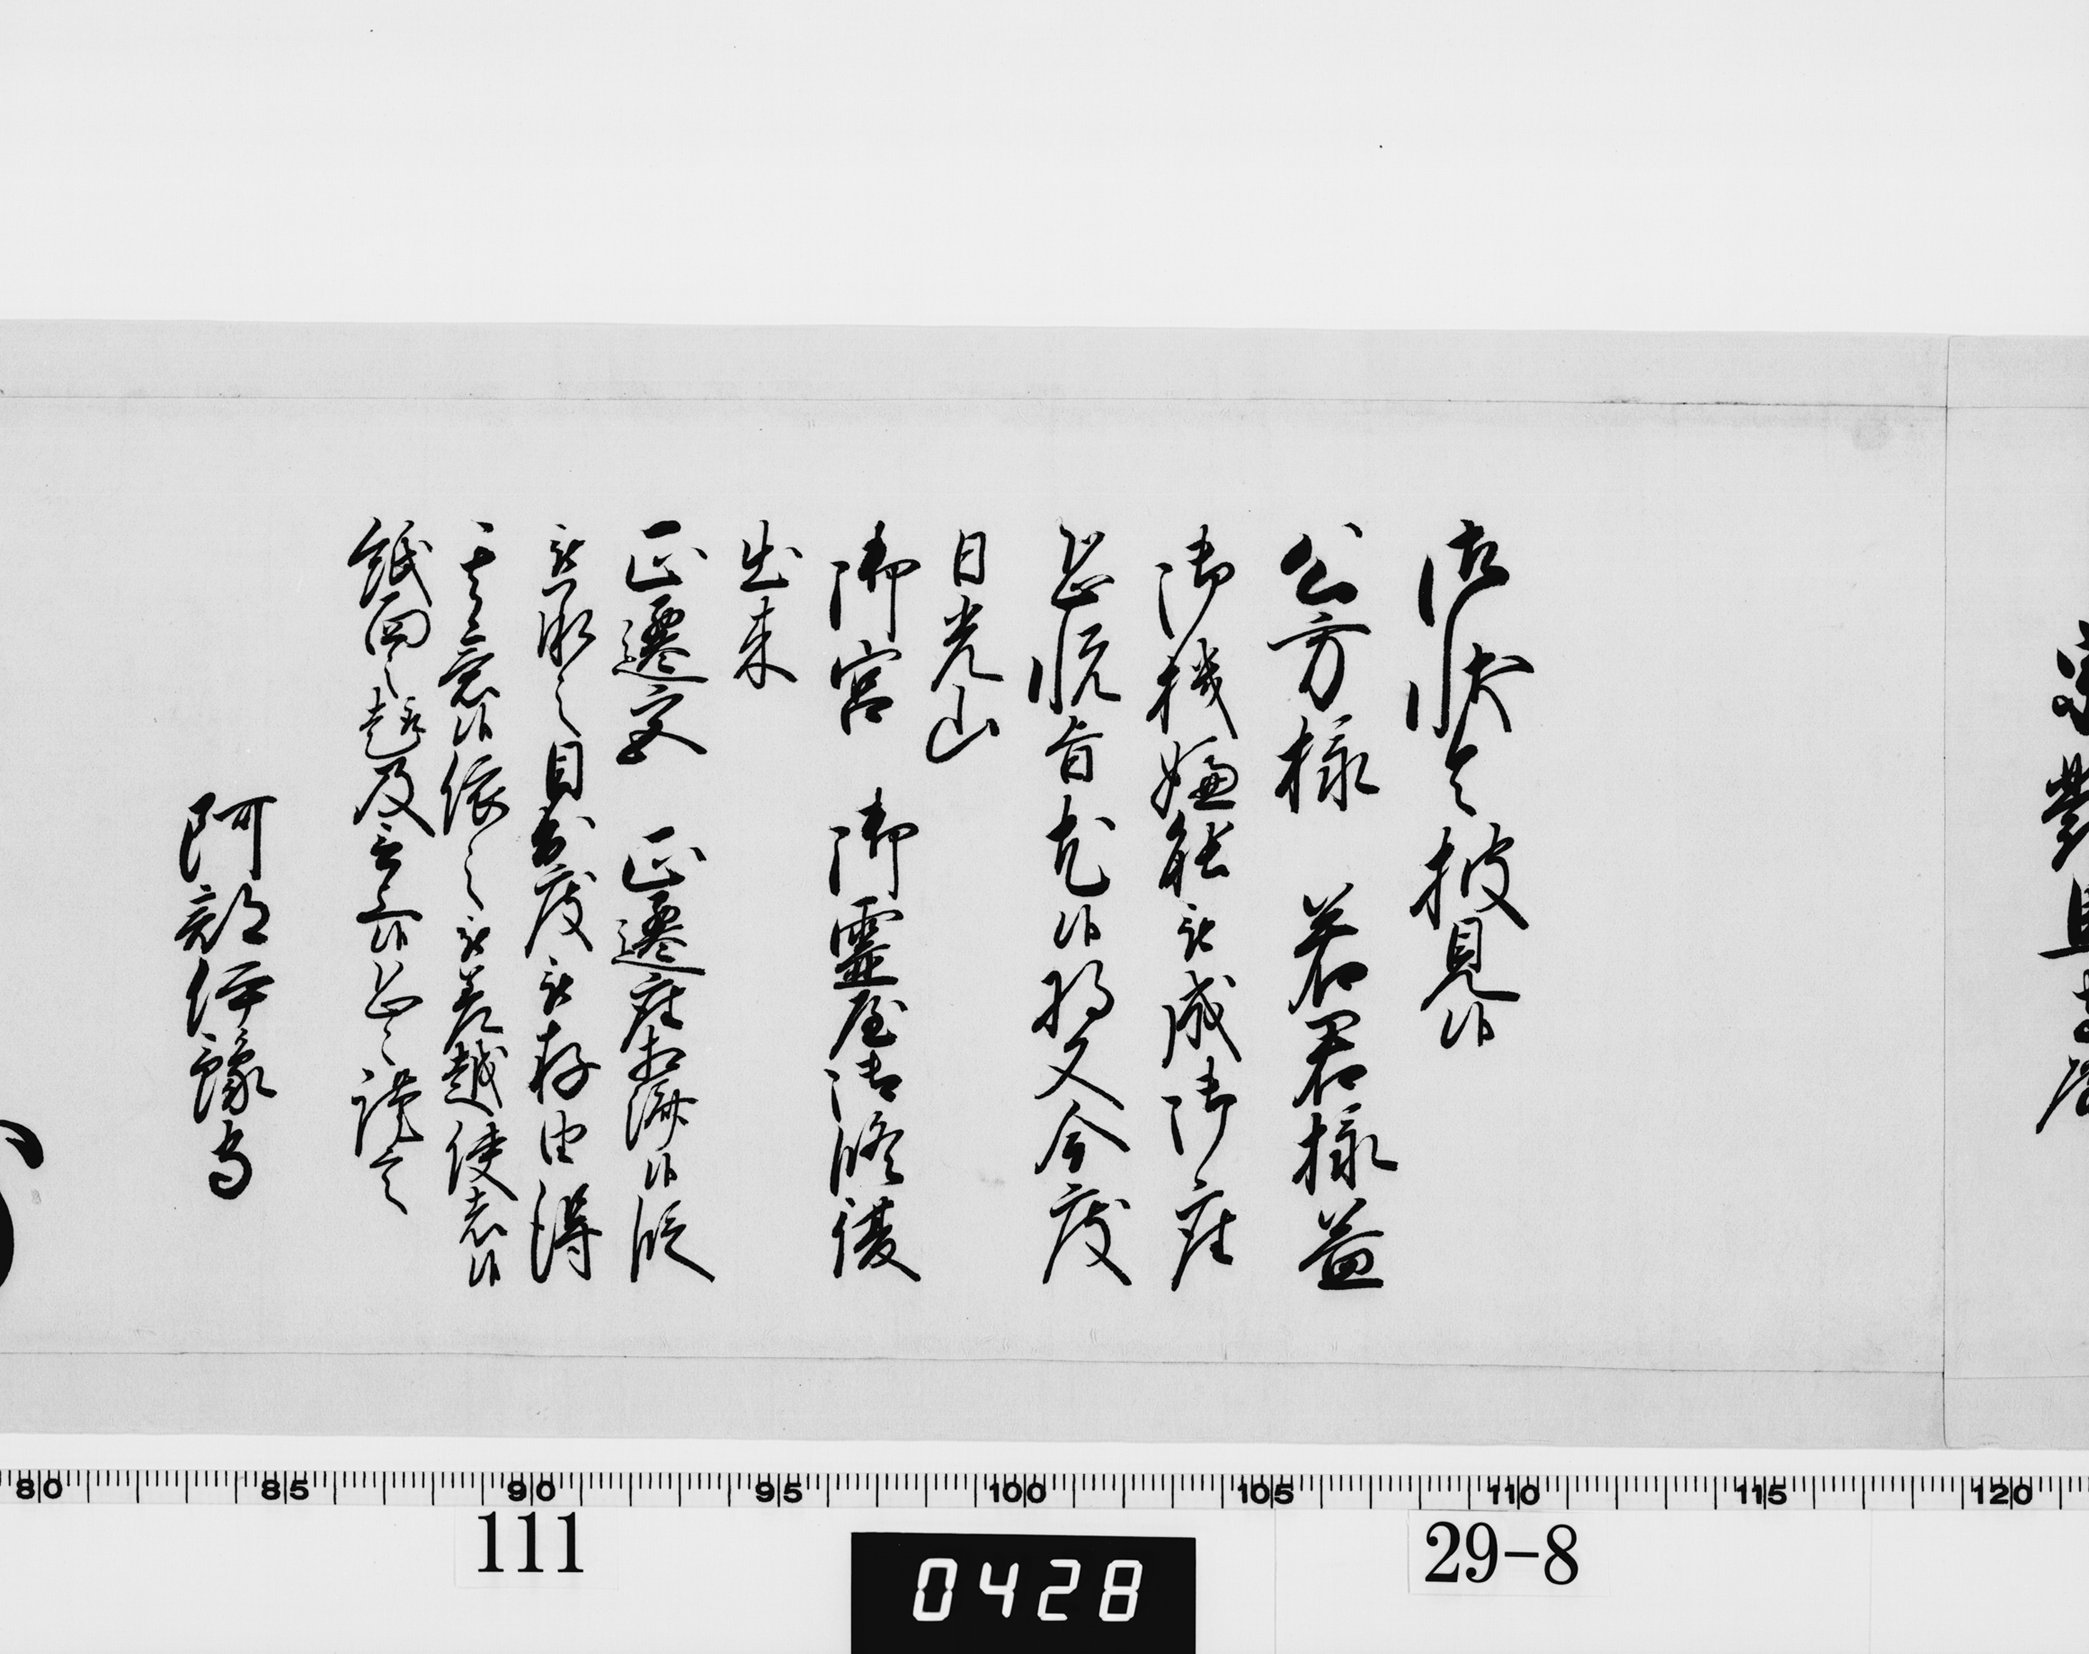 御状令披見候
公方様 若君様益
御機嫌能被成御座
恐悦旨尤候将又今度
日光山
御宮 御霊屋御修復
出来
正遷宮 正遷座相済候段
被承之目出度被存由得
其意候依之被差越使者候
紙面之趣及言上候恐々謹言
阿部伊豫守
80 85 90 95 100 105 110 115 120
111
0428
29-8